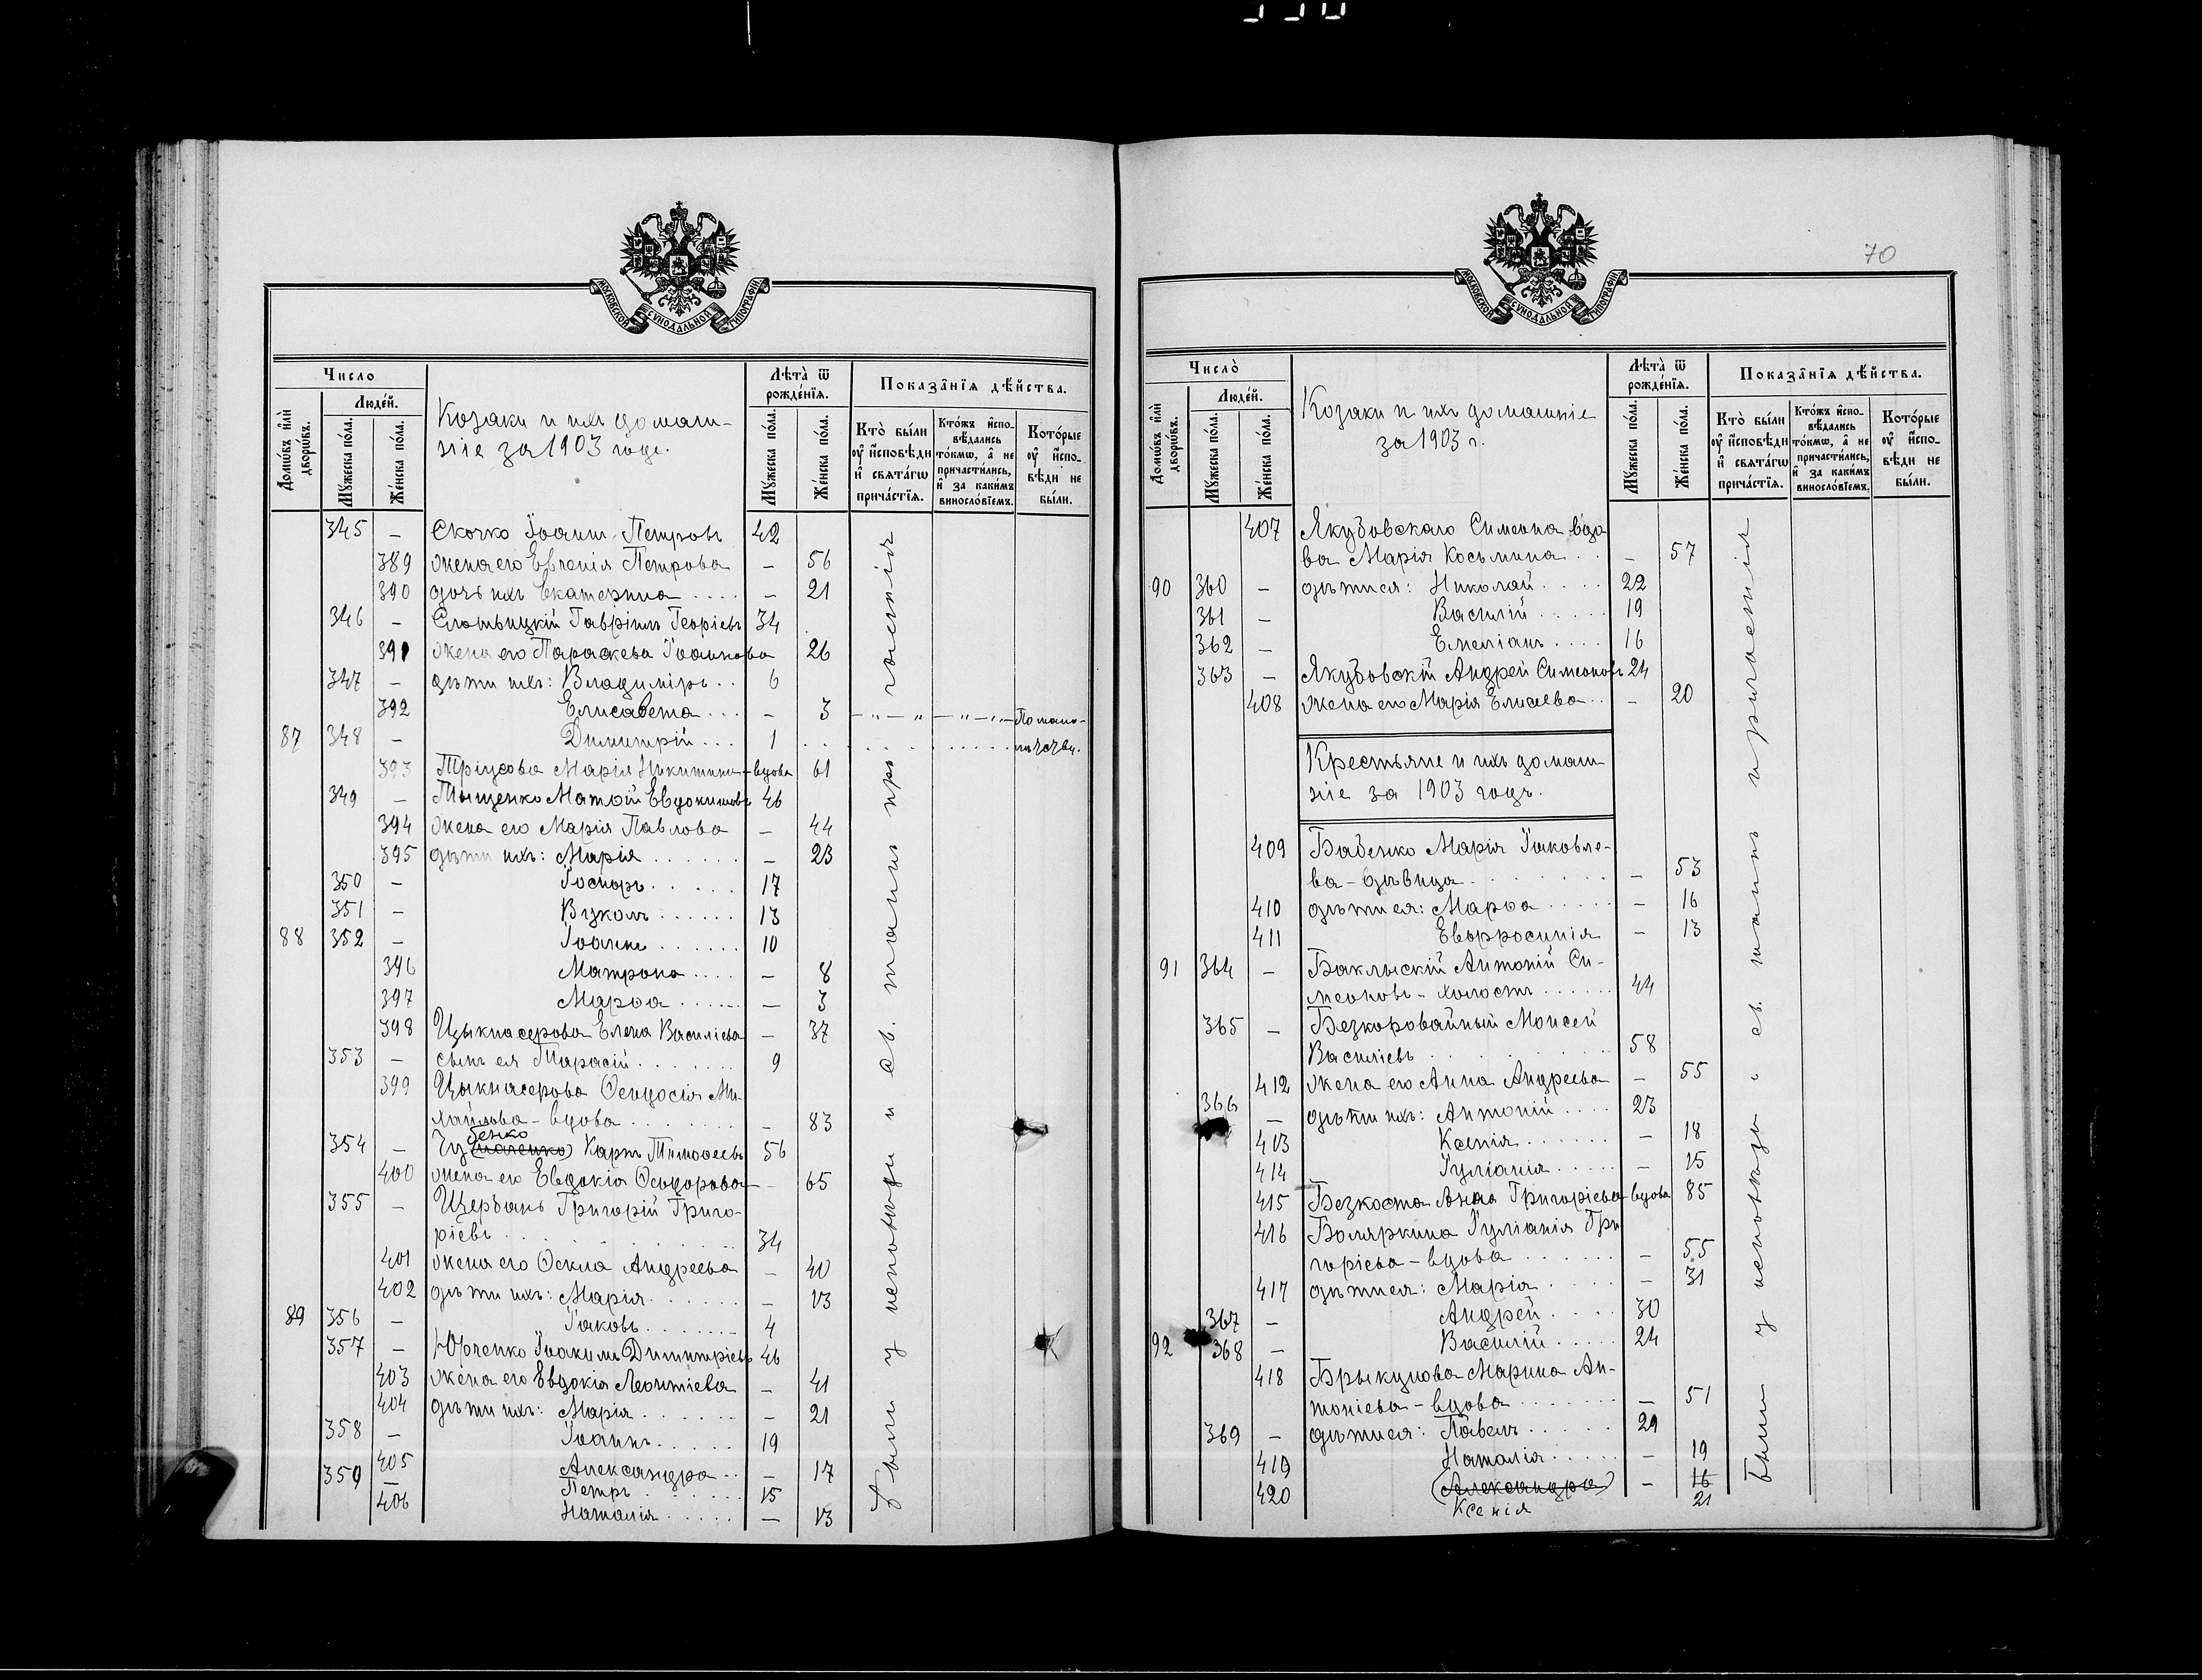 70
МОСКОВСКОЙ СѴНОДАЛЬНОЙ ТИПОГРАФІИ
Число
Людей.
Домѡвъ или дворѡвъ.
Мужеска пола.
Женска пола.
Козаки и ихъ домаш-
ніе за 1903 годъ.
Лѣта ѿ рожденїя.
Мужеска пола.
Женска пола.
Показанїя дѣйства.
Кто были оу исповѣди и свѧтагѡ причастїя.
Ктожъ испо-вѣдались токмѡ, а не причастились, и за какимъ винословїемъ.
Которые оу испо-вѣди не были.
345 — Скочко Іоаннъ Петровъ 42
389 жена его Евгенія Петрова — 56
390 дочь ихъ Екатерина .... — 21
346 — Гавріилъ Георгіевъ 34
391 жена его Параскева Іоаннова 26
347 — дѣти ихъ: Владиміръ .. 6
392 Елисавета ... — 3 — „ — „ — „ — „ — По мало-
87 348 — Димитрій ... 1 лѣтству.
393 Марія Никитина - вдова 61
349 — Тищенко Матѳій Евдокимовъ 46
394 жена его Марія Павлова — 44
395 дѣти ихъ: Марія ...... — 23
350 — Іосифъ ..... 17
351 — Вуколъ ...... 13
88 352 — Іоаннъ ...... 10
396 Матрона .... — 8
397 Марѳа ...... — 3
398 Цыкнасерова Елена Василіева — 37
353 — сынъ ея Тарасій ....... 9
399 Цыкнасерова Ѳеодосія Ми-
хайлова - вдова ........ — 83
бенко
354 — Чу Карпъ Тимоѳеевъ 56
400 жена его Евдокія Ѳеодорова — 65
355 — Щербань Григорій Григо-
ріевъ ......... 34
401 жена его Ѳекла Андреева — 40
402 дѣти ихъ: Марія ...... — 13
89 356 — Іаковъ ...... 4
357 — Юрченко Іоакимъ Димитріевъ 46
403 жена его Евдокія Леонтіева — 41
404 дѣти ихъ: Марія ...... — 21
358 — Іоаннъ ..... 19
405 Александра .. — 17
359 — Петръ ...... 15
406 Наталія ..... — 13
Были у исповѣди и св. таинъ
МОСКОВСКОЙ СѴНОДАЛЬНОЙ ТИПОГРАФІИ
Число
Людей.
Домѡвъ или дворѡвъ.
Мужеска пола.
Женска пола.
Козаки и ихъ домашніе
за 1903 г.
Лѣта ѿ рожденїя.
Мужеска пола.
Женска пола.
Показанїя дѣйства.
Кто были оу исповѣди и свѧтагѡ причастїя.
Ктожъ испо-вѣдались токмѡ, а не причастились, и за какимъ винословїемъ.
Которые оу испо-вѣди не были.
407 Якубовскаго Симеона вдо
ва Марія Косьмина .. — 57
90 360 — дѣти ея: Николай .... 22
361 — Василій ..... 19
362 — Емеліанъ .... 16
363 — Якубовскій Андрей Симеоновъ 24
408 жена его Марія Елисеева .. — 20
Крестьяне и ихъ домаш
ніе за 1903 годъ.
409 Бабенко Марія Іаковле-
ва - дѣвица ....... — 53
410 дѣти ея: Марѳа ..... — 16
411 Евфросинія — 13
91 364 — Антоній Си-
меоновъ - холостъ ...... 44
365 — Безкоровайный Моисей
Василіевъ ......... 58
412 жена его Анна Андреева — 55
366 — дѣти ихъ: Антоній .... 23
413 Ксенія ...... — 18
414 Іуліанія ..... — 15
415 Безкоста Анна Григоріева - вдова 85
416 Боляркина Іуліанія Гри
горіева - вдова ...... — 55
417 дѣти ея: Марія ..... — 31
367 — Андрей .... 30
92 368 — Василій ..... 24
418 Брыкунова Марина Ан-
тоніева - вдова ....... — 51
369 — дѣти ея: Павелъ ...... 29
419 Наталія ...... — 19
420 (Александра) — 16
Ксенія 21
Были у исповѣди и св. таинъ причастія